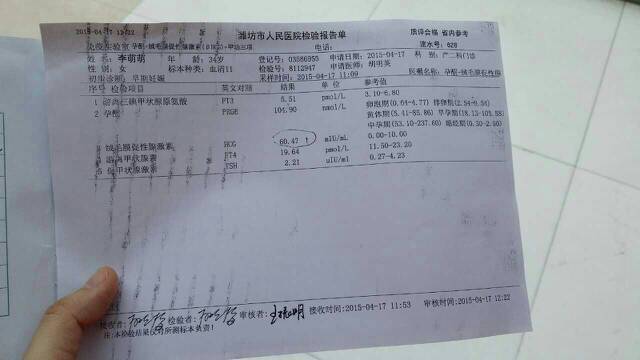 2015-04-17 12:22 潍坊市人民医院检验报告单 质评合格 省内参考
免疫实验室 孕酮+绒毛膜促性腺激素(βHCG)+甲功三项 电话: 流水号: 628
姓 名: 李萌萌 年 龄: 34岁 登记号: 03586955 申请日期: 2015-04-17 科 别: 产二科门诊
性 别: 女 标本种类: 血清11 检验号: 8112947 申请医师: 胡明英
初步诊断: 早期妊娠 采样时间: 2015-04-17 11:09 医嘱名称: 孕酮+绒毛膜促性腺
序号 检验项目 英文对照 结果 单 位 参考值
1 游离三碘甲状腺原氨酸 FT3 5.51 pmol/L 3.10-6.80
2 孕酮 PRGE 104.90 nmol/L 卵泡期(0.64-4.77) 排卵期(2.54-9.54)
黄体期(5.41-85.86) 早孕期(18.13-103.58)
中孕期(53.10-237.60) 绝经期(0.30-2.50)
3 绒毛膜促性腺激素 HCG 60.47 ↑ mIU/mL 0.00-10.00
4 游离甲状腺素 FT4 19.64 pmol/L 11.50-23.20
5 促甲状腺激素 TSH 2.21 uIU/mL 0.27-4.23
接收者: 检验者: 审核者: 接收时间: 2015-04-17 11:53 审核时间: 2015-04-17 12:22
注:本检验结果仅对所测标本负责!